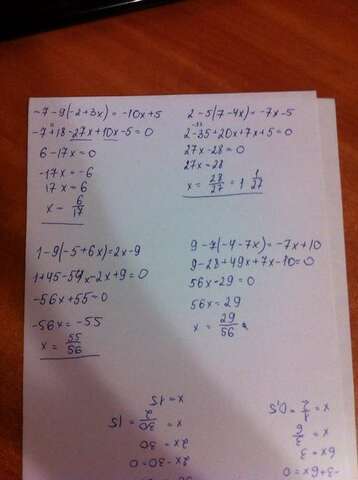 -7-9(-2+3x)=-10x+5
-7+18-27x+10x-5=0
6-17x=0
-17x=-6
17x=6
x-6/17
2-5(7-4x)=-7x-5
2-35+20x+7x+5=0
27x-28=0
27x=28
x=28/27=1 1/27
1-9(-5+6x)=2x-9
1+45-54x-2x+9=0
-56x+55=0
-56x=-55
x=55/56
9-7(-4-7x)=-7x+10
9-28+49x+7x-10=0
56x-29=0
56x=29
x=29/56
2x-30=0
2x=30
x=30/2=15
x=15
-3+6x=0
6x=3
x=3/6
x=1/2=0,5